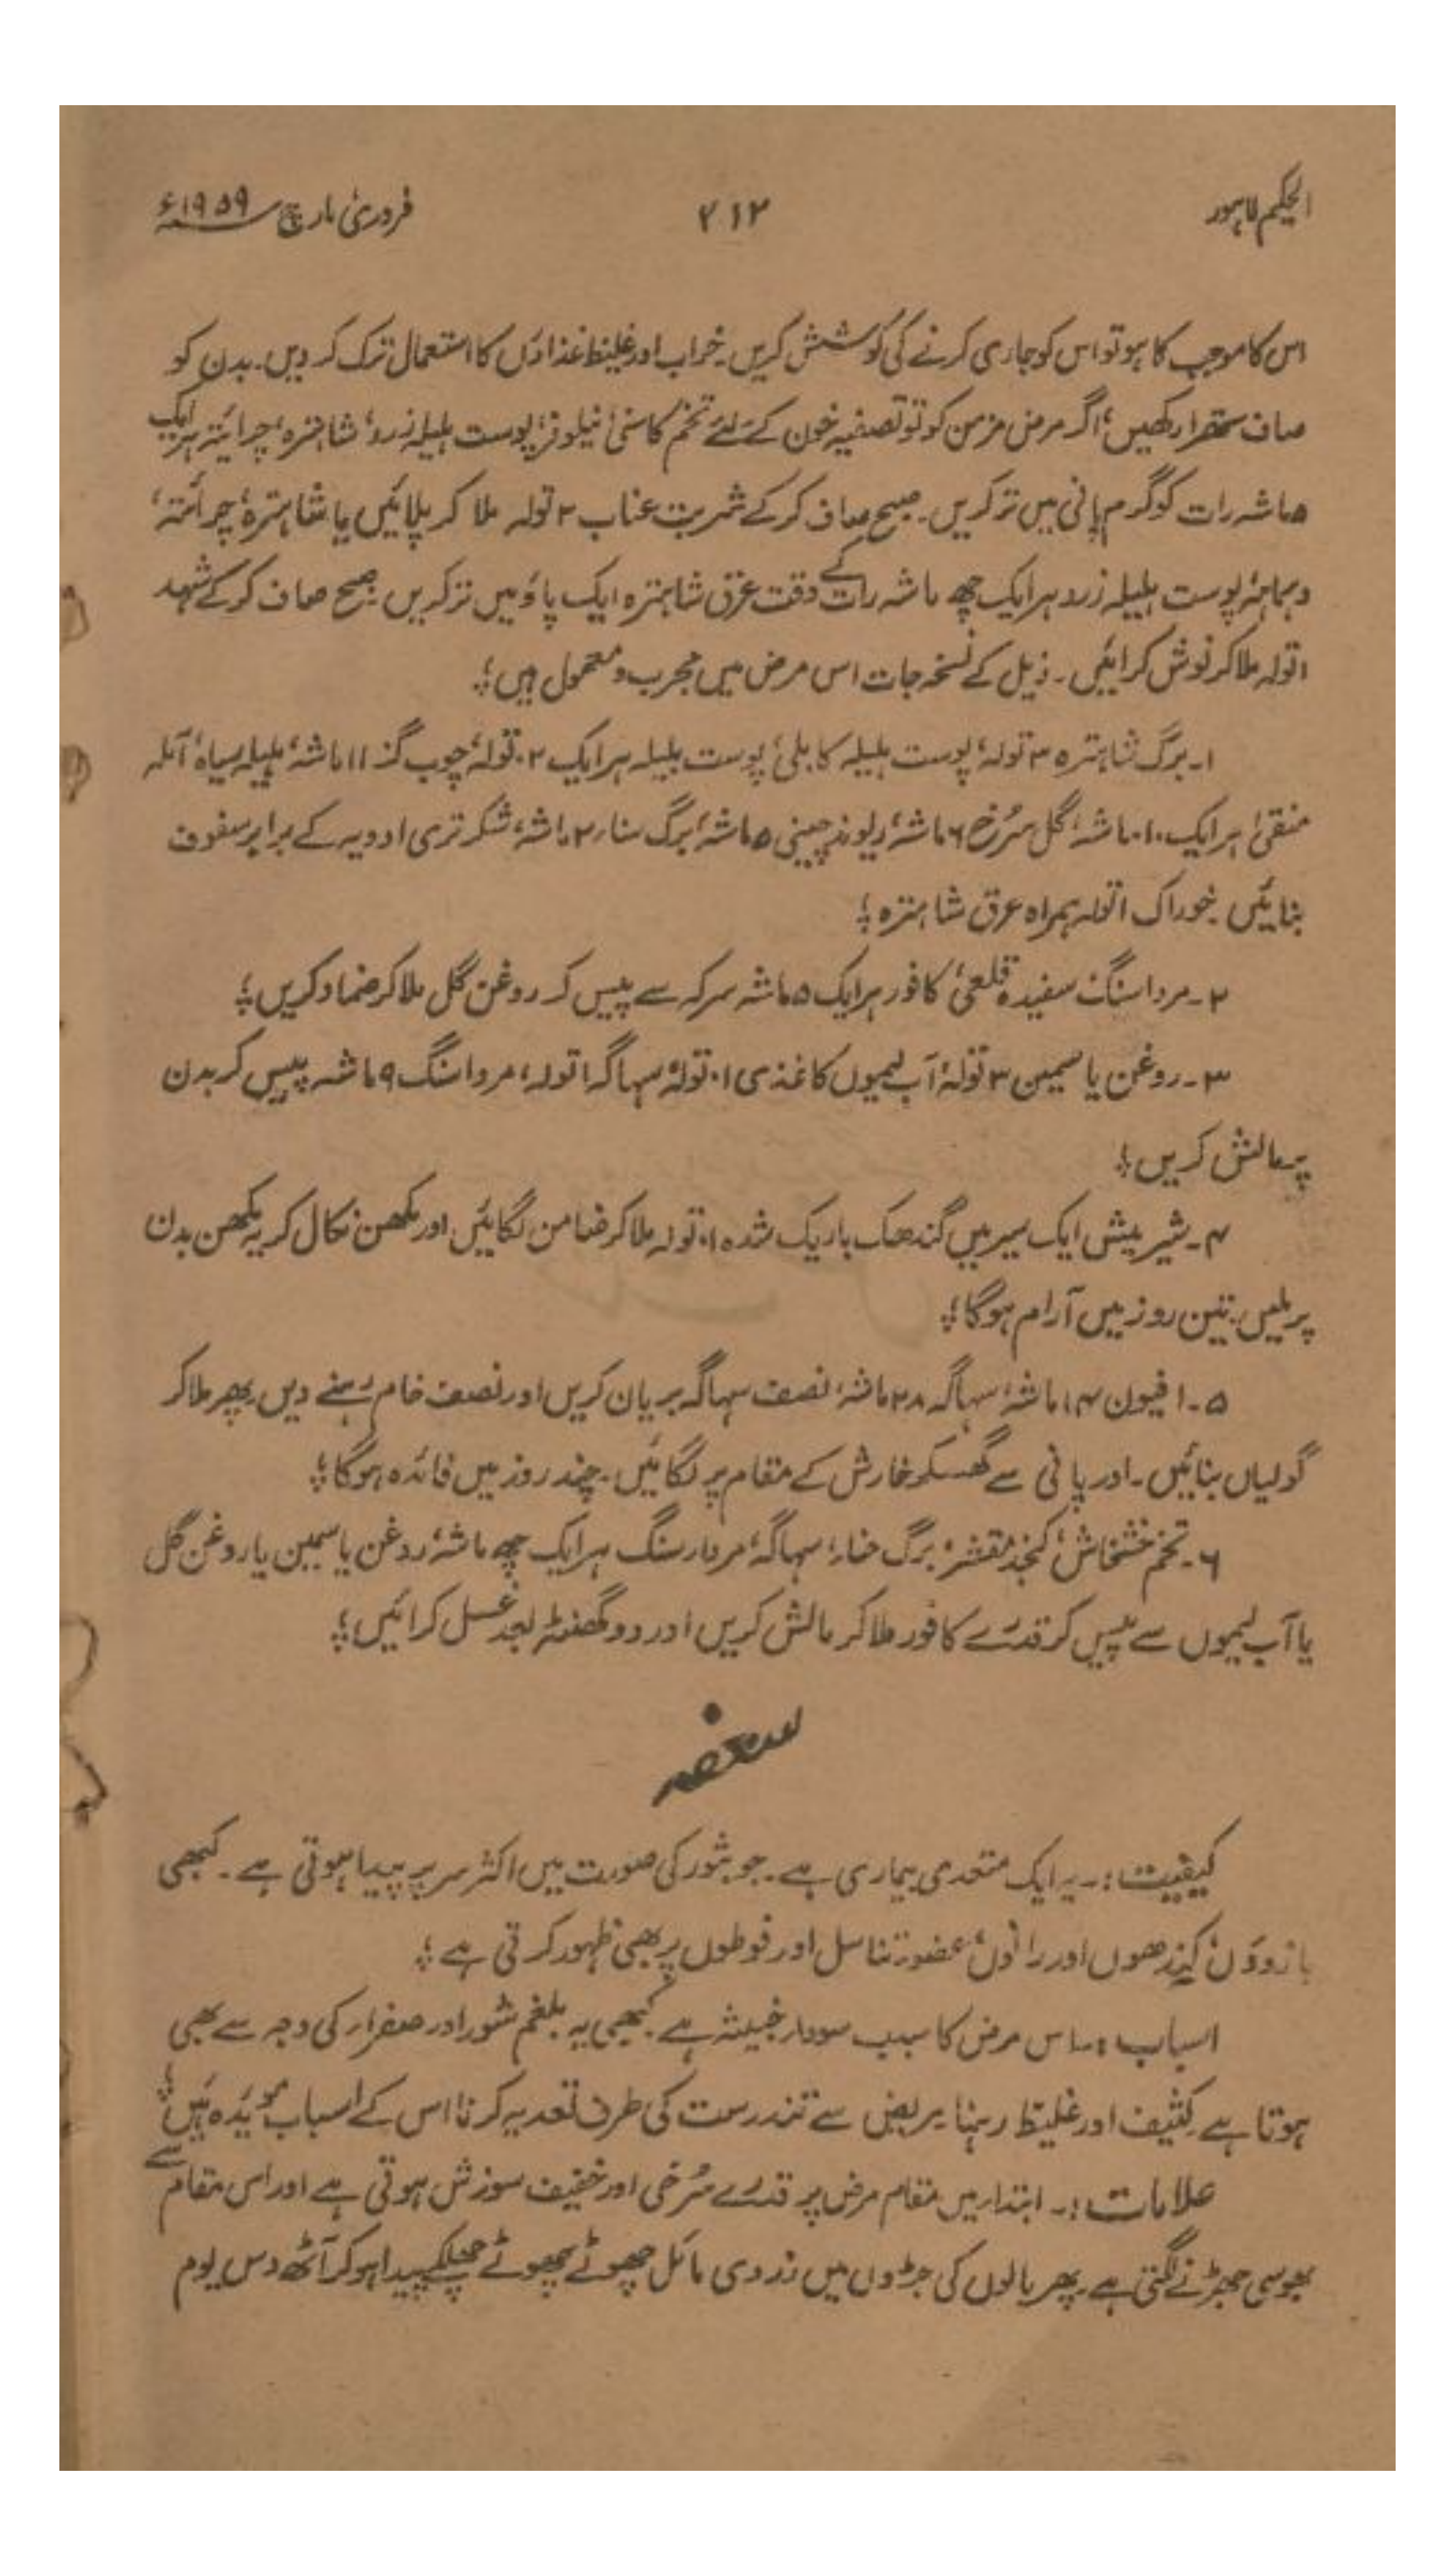 الحکیم لاہور ۲۱۲ فروری مارچ ۱۹۵۹ء
اس کا موجب کا ہو تو اس کو جاری کرنے کی کوشش کریں۔ خراب اور غلیظ غذاؤں کا استعمال ترک کر دیں۔ بدن کو
صاف ستھرا رکھیں؛ اگر مرض مزمن کو تو تصفیہ خون کے لئے تخم کاسنی، نیلوفر، پوست ہلیلہ زرد، شاہترہ، چرائتہ ہر ایک
۵ ماشہ رات کو گرم پانی میں تر کریں۔ صبح صاف کر کے شربت عناب ۲ تولہ ملا کر پلائیں یا شاہترہ، چرائتہ،
دہماہہ، پوست ہلیلہ زرد ہر ایک چھ ماشہ رات کے وقت عرق شاہترہ ایک پاؤ میں تر کریں۔ صبح صاف کر کے شہد
۱ تولہ ملا کر نوش کرائیں۔ ذیل کے نسخہ جات اس مرض میں مجرب و معمول ہیں؛
۱۔ برگ شاہترہ ۳ تولہ، پوست ہلیلہ کابلی، پوست بلیلہ ہر ایک ۲ تولہ، چوب گز ۱۱ ماشہ، ہلیلہ سیاہ، آملہ
منقیٰ ہر ایک ۱۰ ماشہ، گل سرخ ۶ ماشہ، ریوند چینی ۵ ماشہ، برگ سناء ۲ ماشہ، شکر تری ادویہ کے برابر سفوف
بنائیں۔ خوراک ۱ تولہ ہمراہ عرق شاہترہ؛
۲۔ مرداسنگ سفیدہ قلعی، کافور ہر ایک ۵ ماشہ سرکہ سے پیس کر روغن گل ملا کر ضماد کریں؛
۳۔ روغن یاسمین ۳ تولہ، آب لیموں کاغذی ۱۰ تولہ، سہاگہ ۱ تولہ، مرداسنگ ۹ ماشہ پیس کر بدن
پر مالش کریں؛
۴۔ شیر میش ایک سیر میں گندھک باریک شدہ ۱۰ تولہ ملا کر ضامن لگائیں اور مکھن نکال کر یہ مکھن بدن
پر ملیں۔ تین روز میں آرام ہوگا؛
۵۔ افیون ۱۴ ماشہ، سہاگہ ۲۸ ماشہ، نصف سہاگہ بریان کریں اور نصف خام رہنے دیں۔ پھر ملا کر
گولیاں بنائیں۔ اور پانی سے گھسکر خارش کے مقام پر لگائیں۔ چند روز میں فائدہ ہوگا؛
۶۔ تخم خشخاش، کنجد مقشر، برگ حناء، سہاگہ، مردارسنگ ہر ایک چھ ماشہ، روغن یاسمین یا روغن گل
یا آب لیموں سے پیس کر قدرے کافور ملا کر مالش کریں اور دو گھنٹہ بعد غسل کرائیں؛
سعفہ
کیفیت:۔ یہ ایک متعدی بیماری ہے۔ جو بثور کی صورت میں اکثر سر پر پیدا ہوتی ہے۔ کبھی
بازوؤں، کندھوں اور رانوں، عضو تناسل اور فوطوں پر بھی ظہور کرتی ہے؛
اسباب:۔ اس مرض کا سبب سوداء خبیثہ ہے۔ کبھی یہ بلغم شور اور صفراء کی وجہ سے بھی
ہوتا ہے۔ کثیف اور غلیظ رہنا۔ مریض سے تندرست کی طرف تعدیہ کرنا اس کے اسباب مویدہ ہیں؛
علامات:۔ ابتداء میں مقام مرض پر قدرے سرخی اور خفیف سوزش ہوتی ہے اور اس مقام سے
بھوسی جھڑنے لگتی ہے۔ پھر بالوں کی جڑوں میں زردی مائل چھوٹے چھوٹے چھلکے پیدا ہو کر آٹھ دس یوم